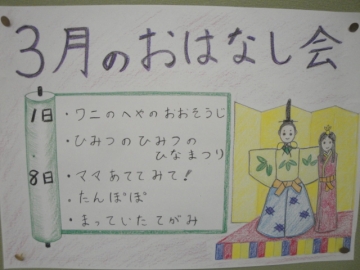 3月のおはなし会
1日
・ワニのへやのおおそうじ
・ひみつのひみつの
ひなまつり
8日
・ママあててみて!
・たんぽぽ
・まっていたてがみ